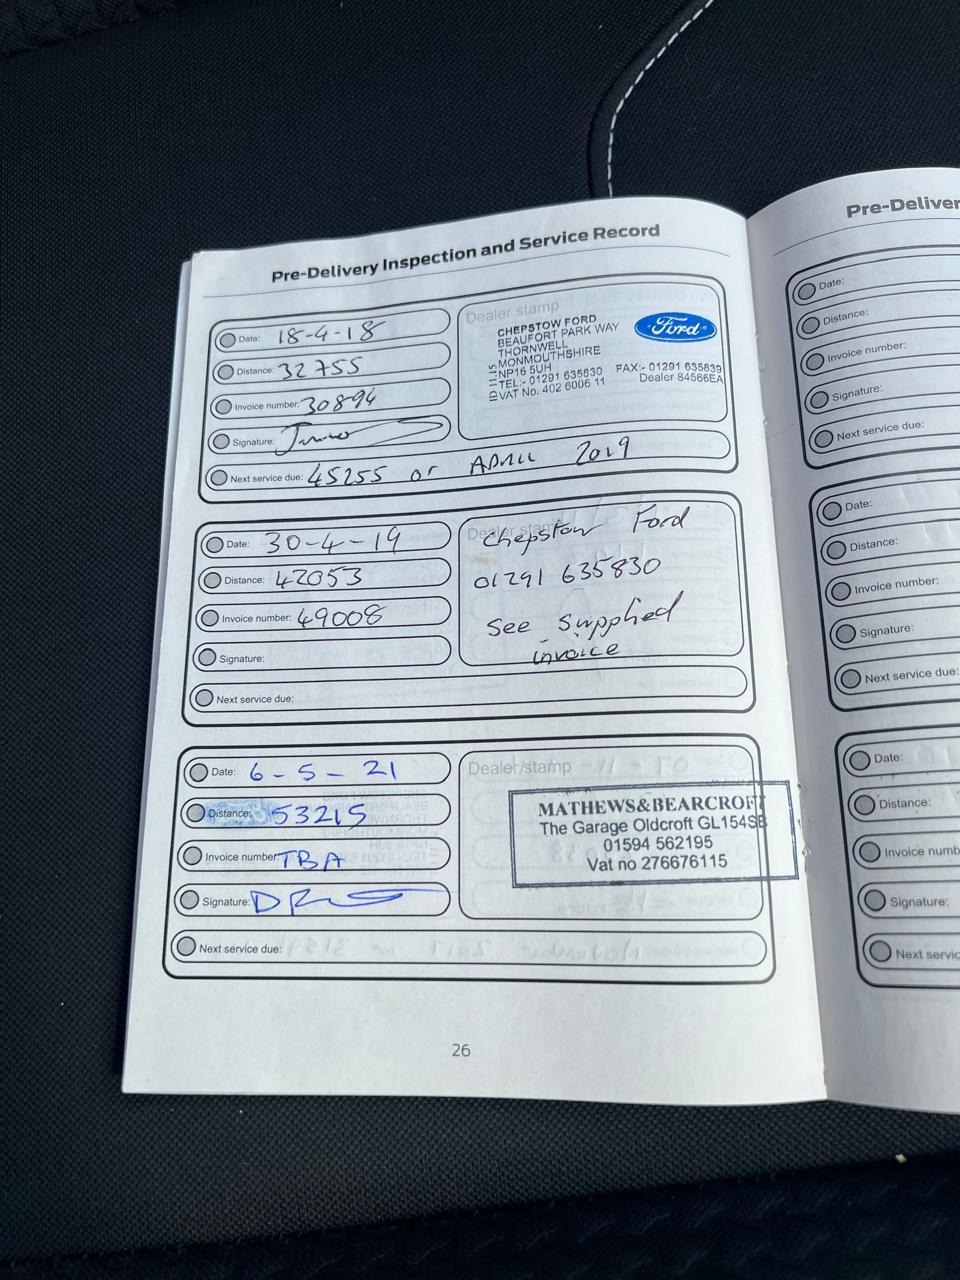 Pre-Delivery Inspection and Service Record
Date: 18-4-18
Distance: 32755
Invoice number: 30894
Signature:
Next service due: 45255 or APRIL 2019
Dealer stamp
CHEPSTOW FORD
BEAUFORT PARK WAY
THORNWELL
MONMOUTHSHIRE
NP16 5UH
TEL:- 01291 635830 FAX:- 01291 635839
VAT No. 402 6006 11 Dealer 84566EA
Ford
Date: 30-4-19
Distance: 42053
Invoice number: 49008
Signature:
Next service due:
Dealer stamp
Chepstow Ford
01291 635830
See supplied
invoice
Date: 6-5-21
Distance: 53215
Invoice number: TBA
Signature:
Next service due:
Dealer stamp
MATHEWS&BEARCROFT
The Garage Oldcroft GL154SB
01594 562195
Vat no 276676115
26
Date:
Distance:
Invoice number:
Signature:
Next service due:
Date:
Distance:
Invoice number:
Signature:
Next service due:
Date:
Distance:
Signature: